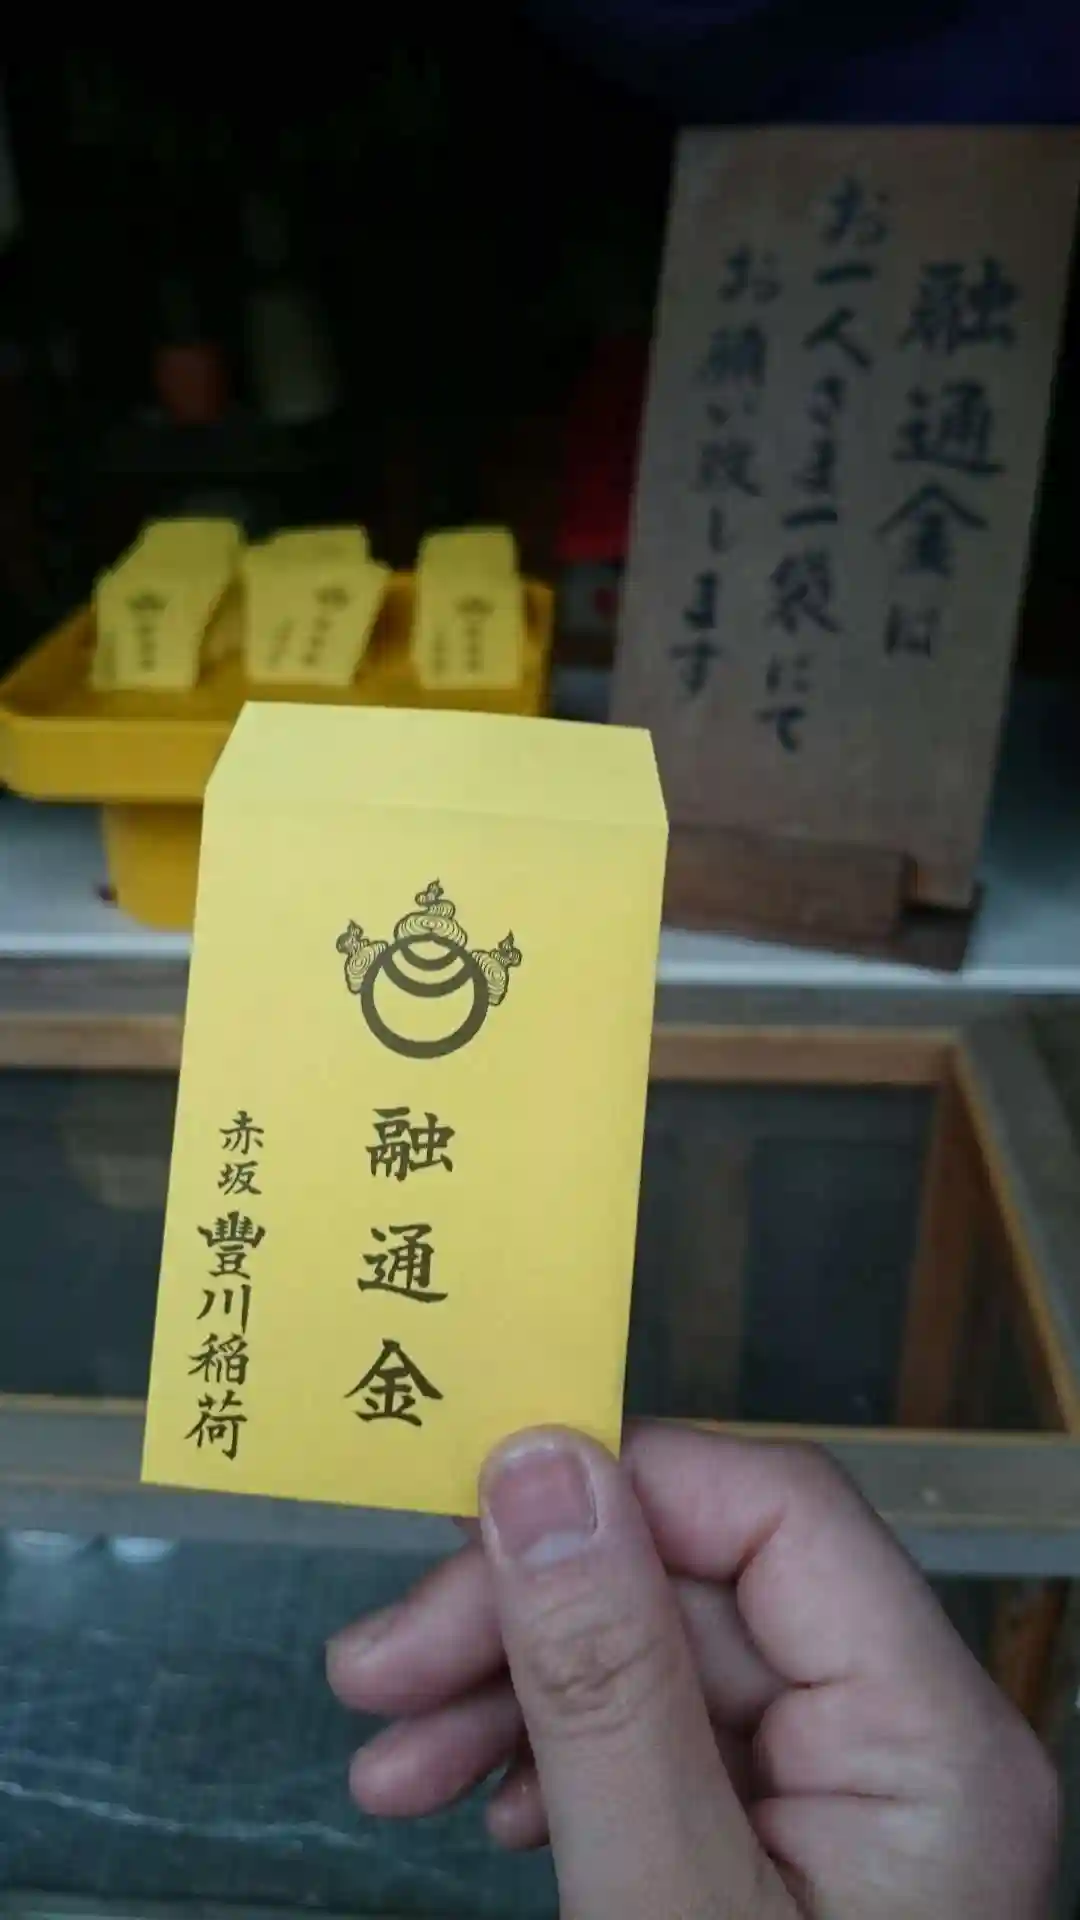 融通金は
お一人さま一袋にて
お願い致します
融通金
赤坂豐川稲荷